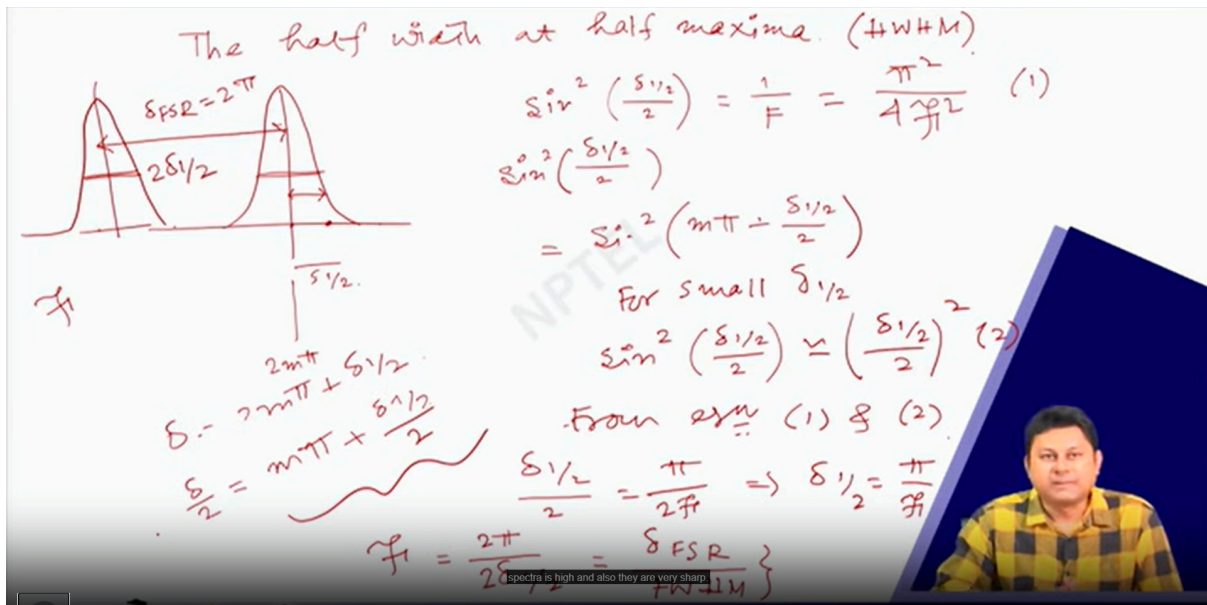 The half width at half maxima. (HWHM)
δFSR = 2π
2δ1/2
δ1/2.
2mπ
ℱ
δ = 2mπ + δ1/2
δ/2 = mπ + δ1/2/2
sin² (δ1/2/2) = 1/F = π²/4ℱ² (1)
sin² (δ1/2/2)
= Sin² (mπ + δ1/2/2)
For small δ1/2
sin² (δ1/2/2) ≃ (δ1/2/2)² (2)
From eqn (1) & (2)
δ1/2/2 = π/2ℱ => δ1/2 = π/ℱ
ℱ = 2π/2δ1/2 = δFSR/FWHM }
NPTEL
spectra is high and also they are very sharp.